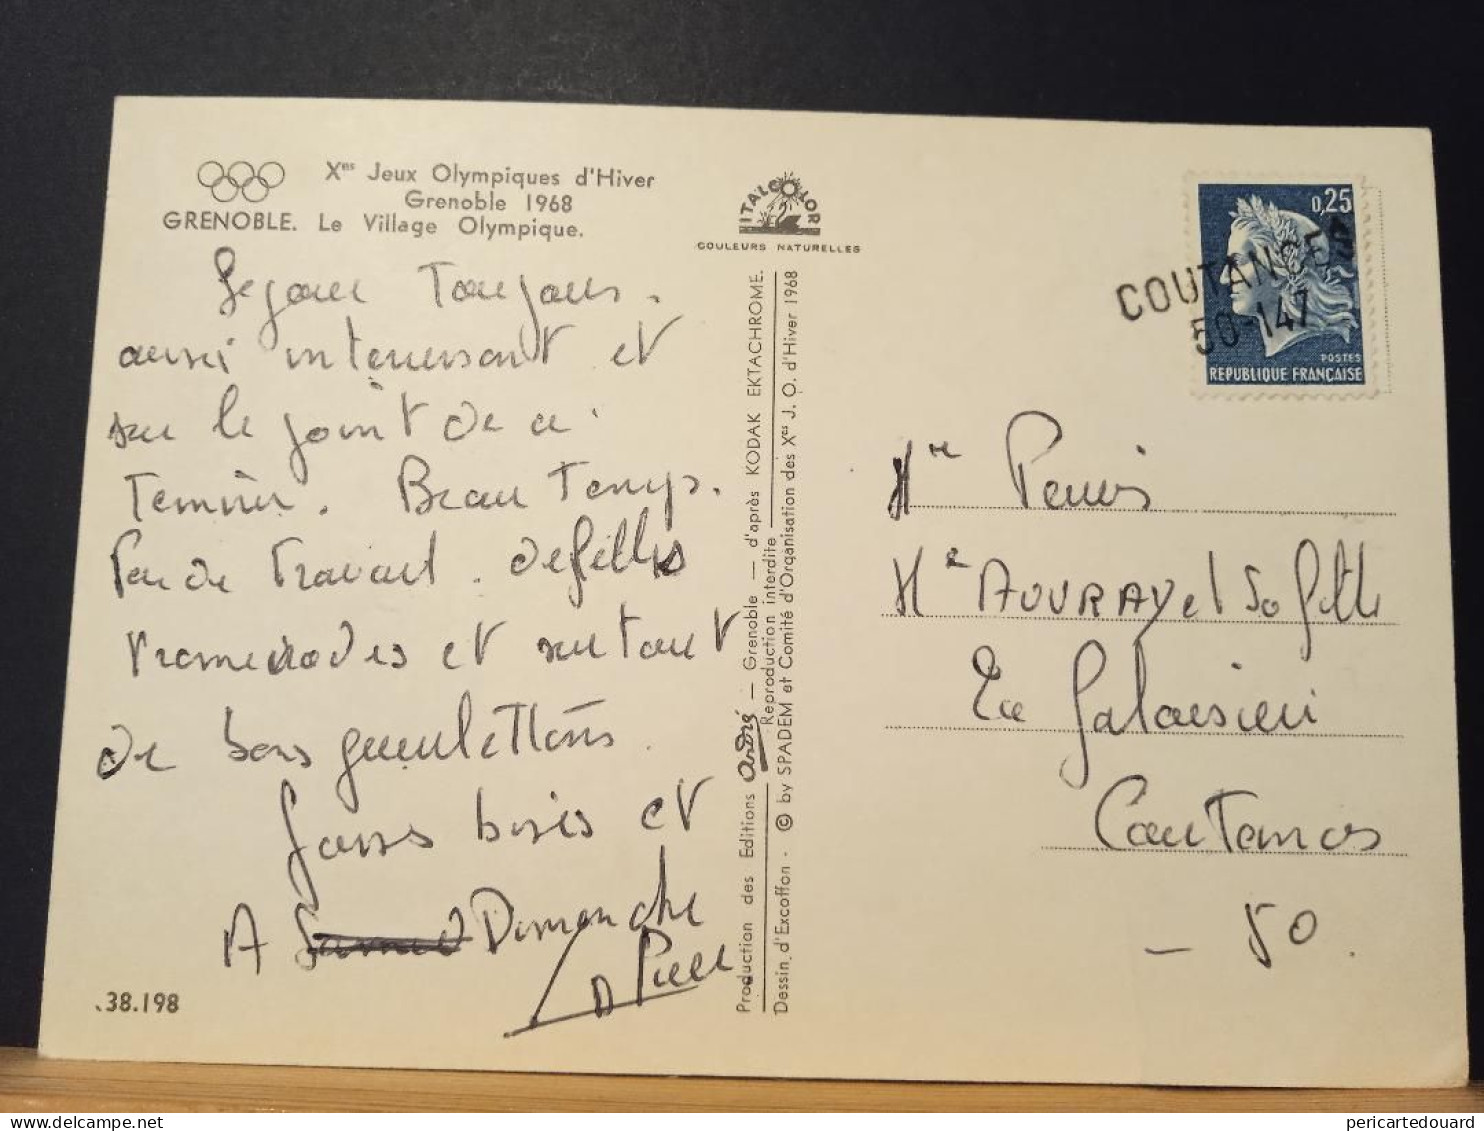 Xes Jeux Olympiques d'Hiver
Grenoble 1968
GRENOBLE. Le Village Olympique.
ITALCOLOR
COULEURS NATURELLES
0,25
POSTES
REPUBLIQUE FRANÇAISE
COUTANCES
50-147
Sejour Toujours
aussi interessant et
sur le point de se
Terminer. Beau Temps.
Peu de Travail. de belles
Promenades et surtout
de bons gueuletons.
Gross bises et
A Samedi Dimanche
Pierre
38.198
Production des Editions André — Grenoble — d'après KODAK EKTACHROME.
Reproduction interdite
Dessin d'Excoffon - © by SPADEM et Comité d'Organisation des Xes J. O. d'Hiver 1968
Me
Me AUVRAY et Sa fille
La Galaisière
Coutances
- 50.
pericartedouard